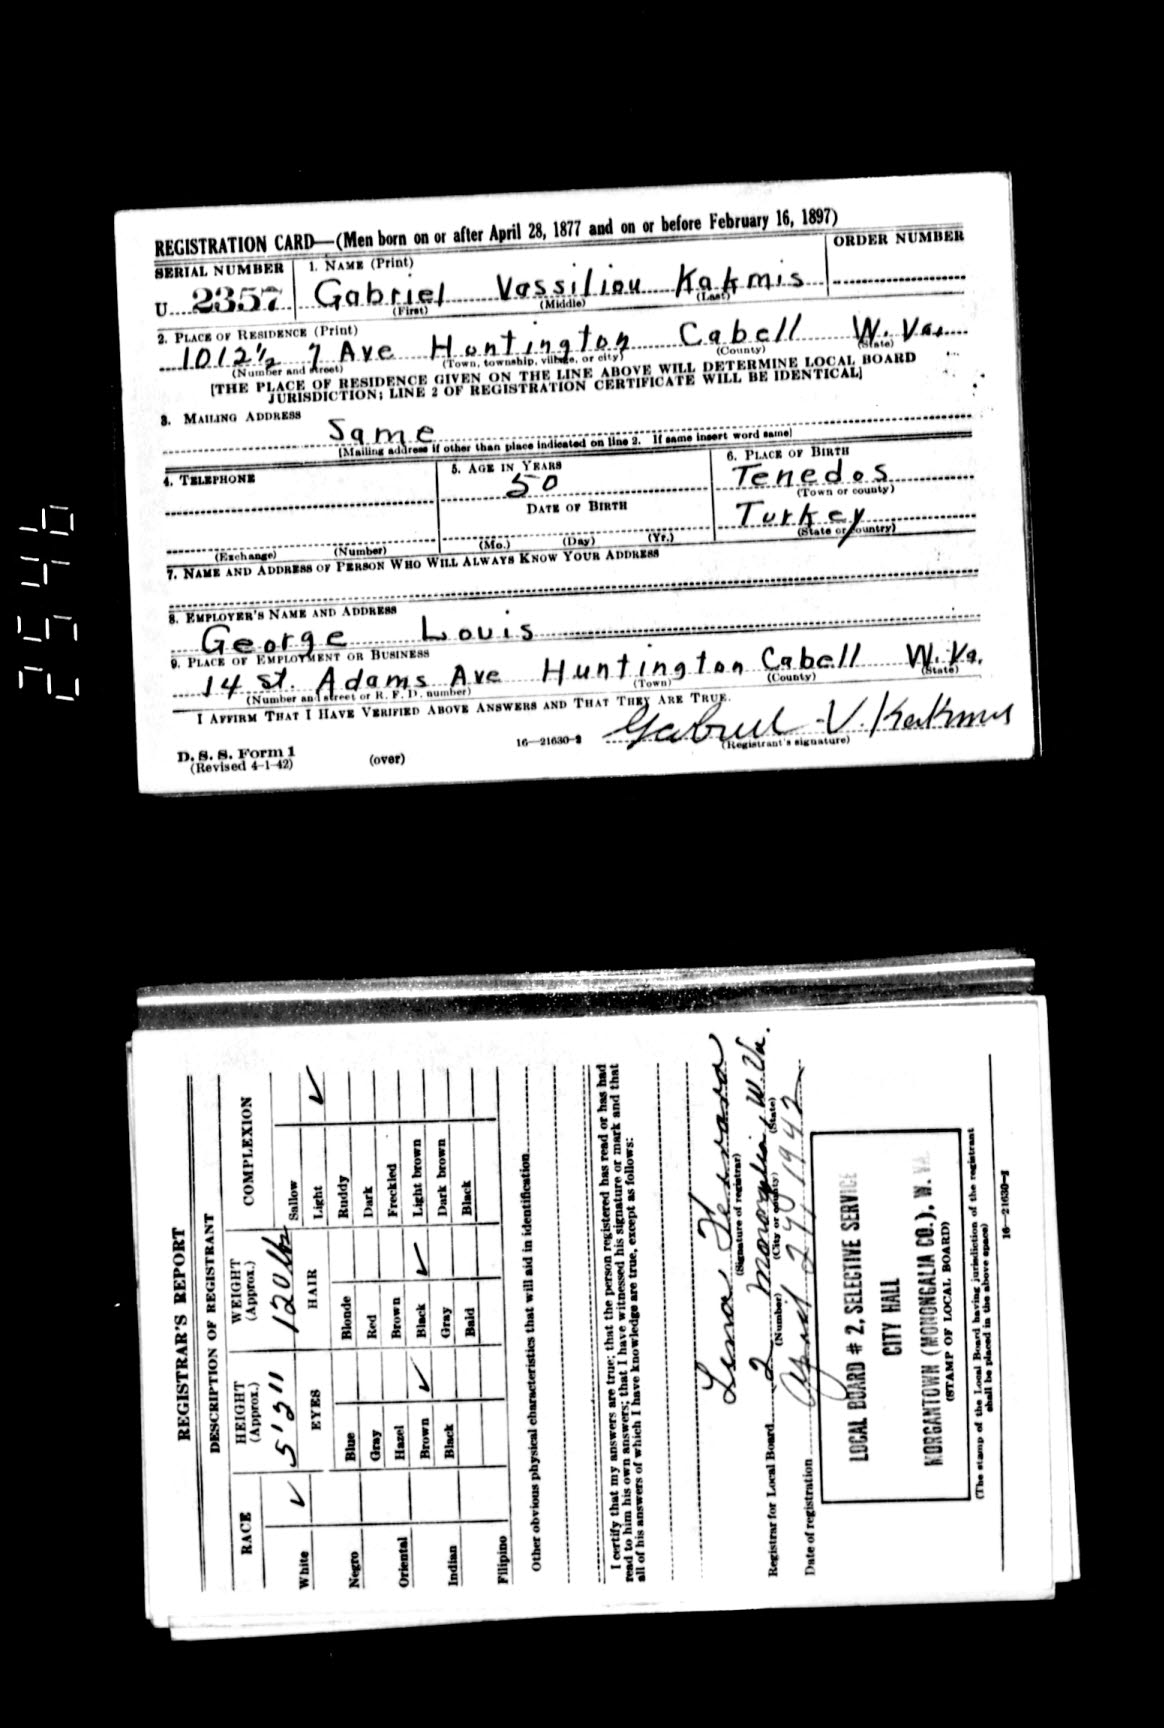 REGISTRATION CARD—(Men born on or after April 28, 1877 and on or before February 16, 1897)
SERIAL NUMBER
1. NAME (Print)
ORDER NUMBER
U 2357
Gabriel Vassiliou Kakmis
(First) (Middle) (Last)
2. PLACE OF RESIDENCE (Print)
1012½ 7 Ave Huntington Cabell W. Va.
(Number and street) (Town, township, village, or city) (County) (State)
[THE PLACE OF RESIDENCE GIVEN ON THE LINE ABOVE WILL DETERMINE LOCAL BOARD
JURISDICTION; LINE 2 OF REGISTRATION CERTIFICATE WILL BE IDENTICAL]
3. MAILING ADDRESS
Same
[Mailing address if other than place indicated on line 2. If same insert word same]
4. TELEPHONE
5. AGE IN YEARS
6. PLACE OF BIRTH
50
Tenedos
(Town or county)
DATE OF BIRTH
Turkey
(State or country)
(Exchange) (Number)
(Mo.) (Day) (Yr.)
7. NAME AND ADDRESS OF PERSON WHO WILL ALWAYS KNOW YOUR ADDRESS
8. EMPLOYER'S NAME AND ADDRESS
George Louis
9. PLACE OF EMPLOYMENT OR BUSINESS
14 St. Adams Ave Huntington Cabell W. Va.
(Number and street or R. F. D. number) (Town) (County) (State)
I AFFIRM THAT I HAVE VERIFIED ABOVE ANSWERS AND THAT THEY ARE TRUE.
Gabriel V. Kakmis
(Registrant's signature)
D. S. S. Form 1
(Revised 4-1-42)
(over)
16—21630-2
REGISTRAR'S REPORT
DESCRIPTION OF REGISTRANT
RACE
HEIGHT
(Approx.)
WEIGHT
(Approx.)
COMPLEXION
White ✓
5'3" 120 lbs
Sallow
EYES
HAIR
Light ✓
Negro
Blue
Blonde
Ruddy
Gray
Red
Dark
Oriental
Hazel
Brown
Freckled
Brown ✓
Black ✓
Light brown
Indian
Black
Gray
Dark brown
Bald
Black
Filipino
Other obvious physical characteristics that will aid in identification
I certify that my answers are true; that the person registered has read or has had
read to him his own answers; that I have witnessed his signature or mark and that
all of his answers of which I have knowledge are true, except as follows:
Lena
(Signature of registrar)
Registrar for Local Board 2 Monongalia, W. Va.
(Number) (City or county) (State)
Date of registration April 1942
LOCAL BOARD # 2, SELECTIVE SERVICE
CITY HALL
MORGANTOWN (MONONGALIA CO.), W. VA.
(STAMP OF LOCAL BOARD)
(The stamp of the Local Board having jurisdiction of the registrant
shall be placed in the above space)
16—21630-2